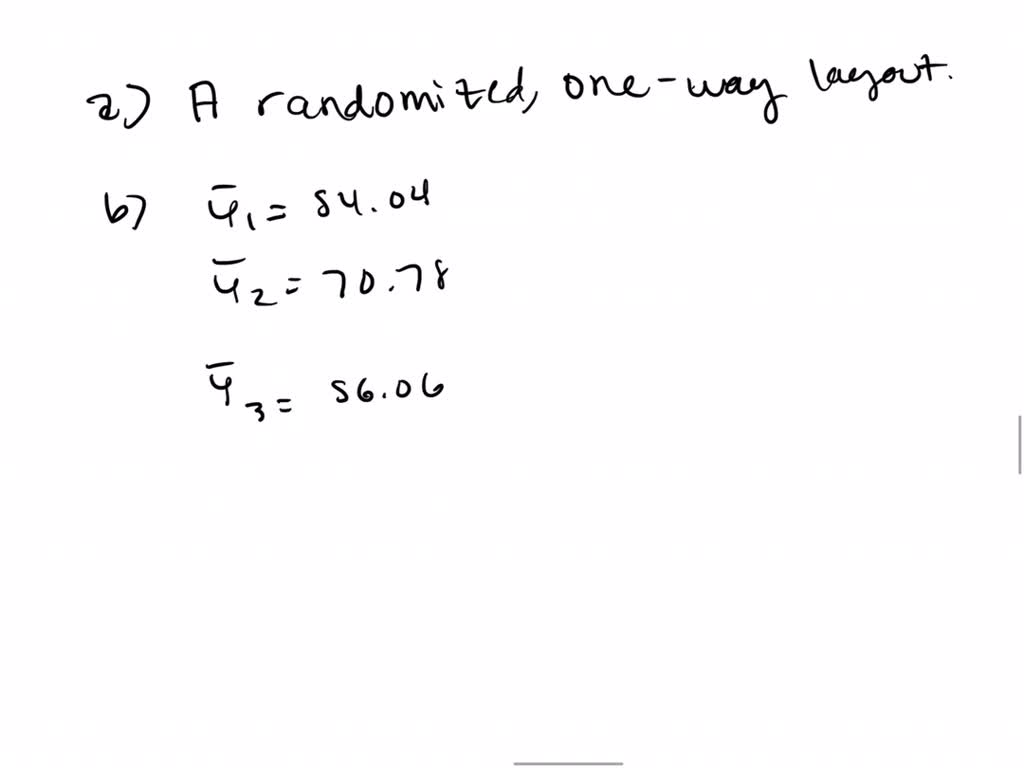 a) A randomized, one-way layout.
b) ȳ₁ = 84.04
ȳ₂ = 70.78
ȳ₃ = 86.06